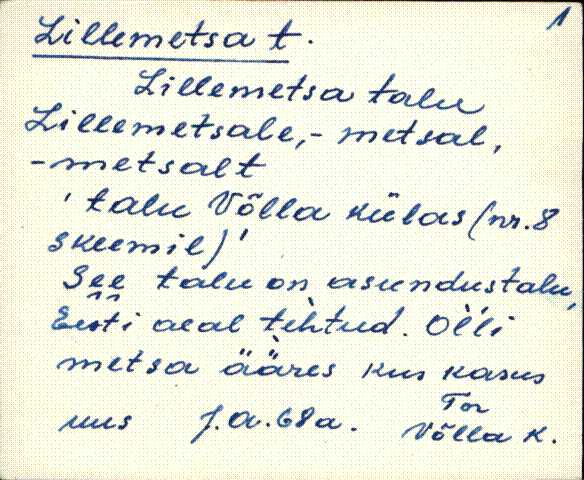 1
Lillemetsa t.
Lillemetsa talu
Lillemetsale, -metsal,
-metsalt
'talu Võlla külas (nr. 8
skeemil)'
See talu on asundustalu,
Eesti aeal tehtud. Olli
metsa ääres kus kasus
uus J.A. 68 a. Tor
Võlla k.